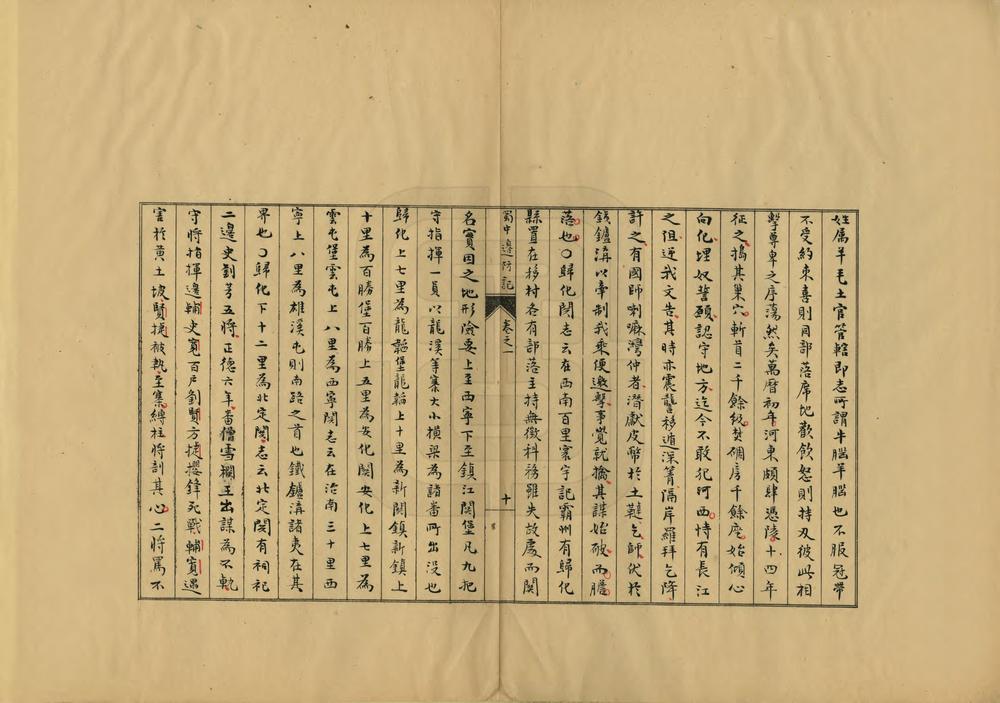 姓属羊毛土官管轄即志所謂牛腦羊腦也不服冠帶
不受約束喜則同部落席地歡飲怒則持刃彼此相
擊尊卑之序蕩然矣萬曆初年河東頗肆憑陵十四年
征之搗其巢穴斬首二千餘級焚碉房千餘座始傾心
向化埋奴誓願認守地方迄今不敢犯河西恃有長江
之阻逆我文告其時亦震讋移遁深箐隔岸羅拜乞降
許之有國師喇嘛灣仲者潛獻皮幣於土韃乞師伏於
鐵鑪溝以牽制我乘便邀擊事覺就擒其謀始破而膽
落也〇歸化関志云在西南百里寰宇記霸州有歸化
縣置在移村各有部落主持無徵科務雖失故處而関
蜀中邊防記 卷之一 十
名實因之地形險要上至西寧下至鎮江関堡凡九把
守指揮一員以龍溪等寨大小横梁為諸番所出没也
歸化上七里為龍韜堡龍韜上十里為新関鎮新鎮上
十里為百勝堡百勝上五里為安化関安化上七里為
雲屯堡雲屯上八里為西寧関志云在治南三十里西
寧上八里為雄溪屯則南路之首也鐵鑪溝諸夷在其
界也〇歸化下十二里為北定関志云北定関有祠祀
二邊吏劉芳五將正德六年番僧雪欄王出謀為不軌
守將指揮邊輔吏寘百戸劉賢方捷攖鋒死戰輔寘遇
害於黄土坡賢捷被執至寨縛柱將剖其心二將罵不